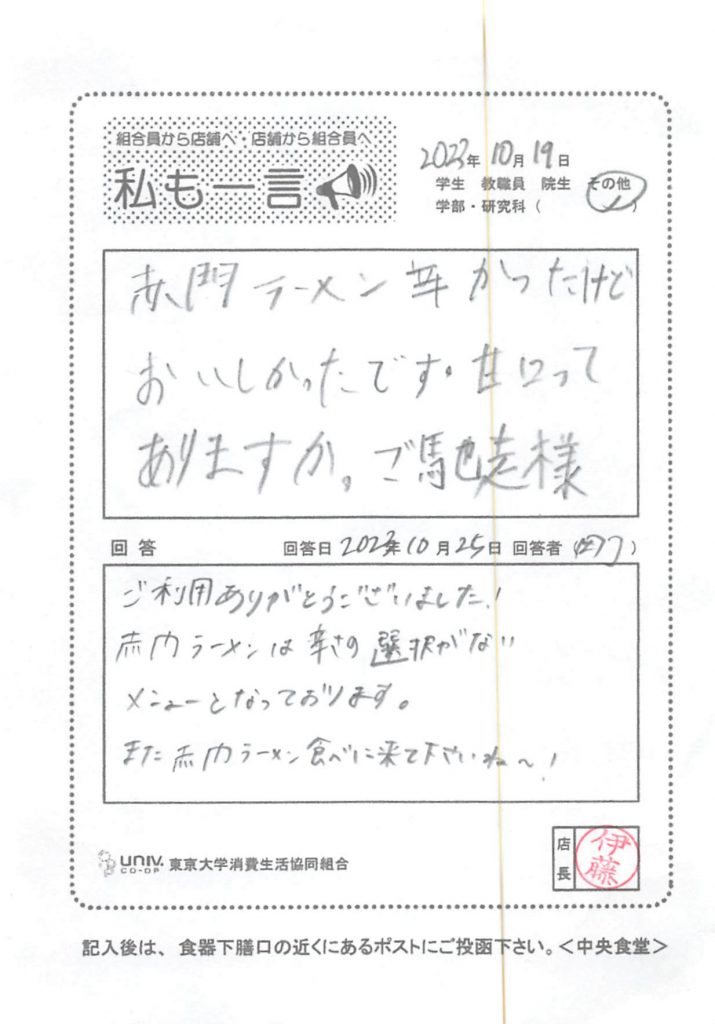 組合員から店舗へ・店舗から組合員へ
私も一言
2023年 10月 19日
学生 教職員 院生 その他
学部・研究科( )
赤門ラーメン辛かったけど
おいしかったです。甘口って
ありますか。ご馳走様
回答 回答日 2023年 10月 25日 回答者( )
ご利用ありがとうございました!
赤門ラーメンは辛さの選択がない
メニューとなっております。
また赤門ラーメン食べに来て下さいね〜!
UNIV.
CO-OP
東京大学消費生活協同組合
店長
伊藤
記入後は、食器下膳口の近くにあるポストにご投函下さい。<中央食堂>